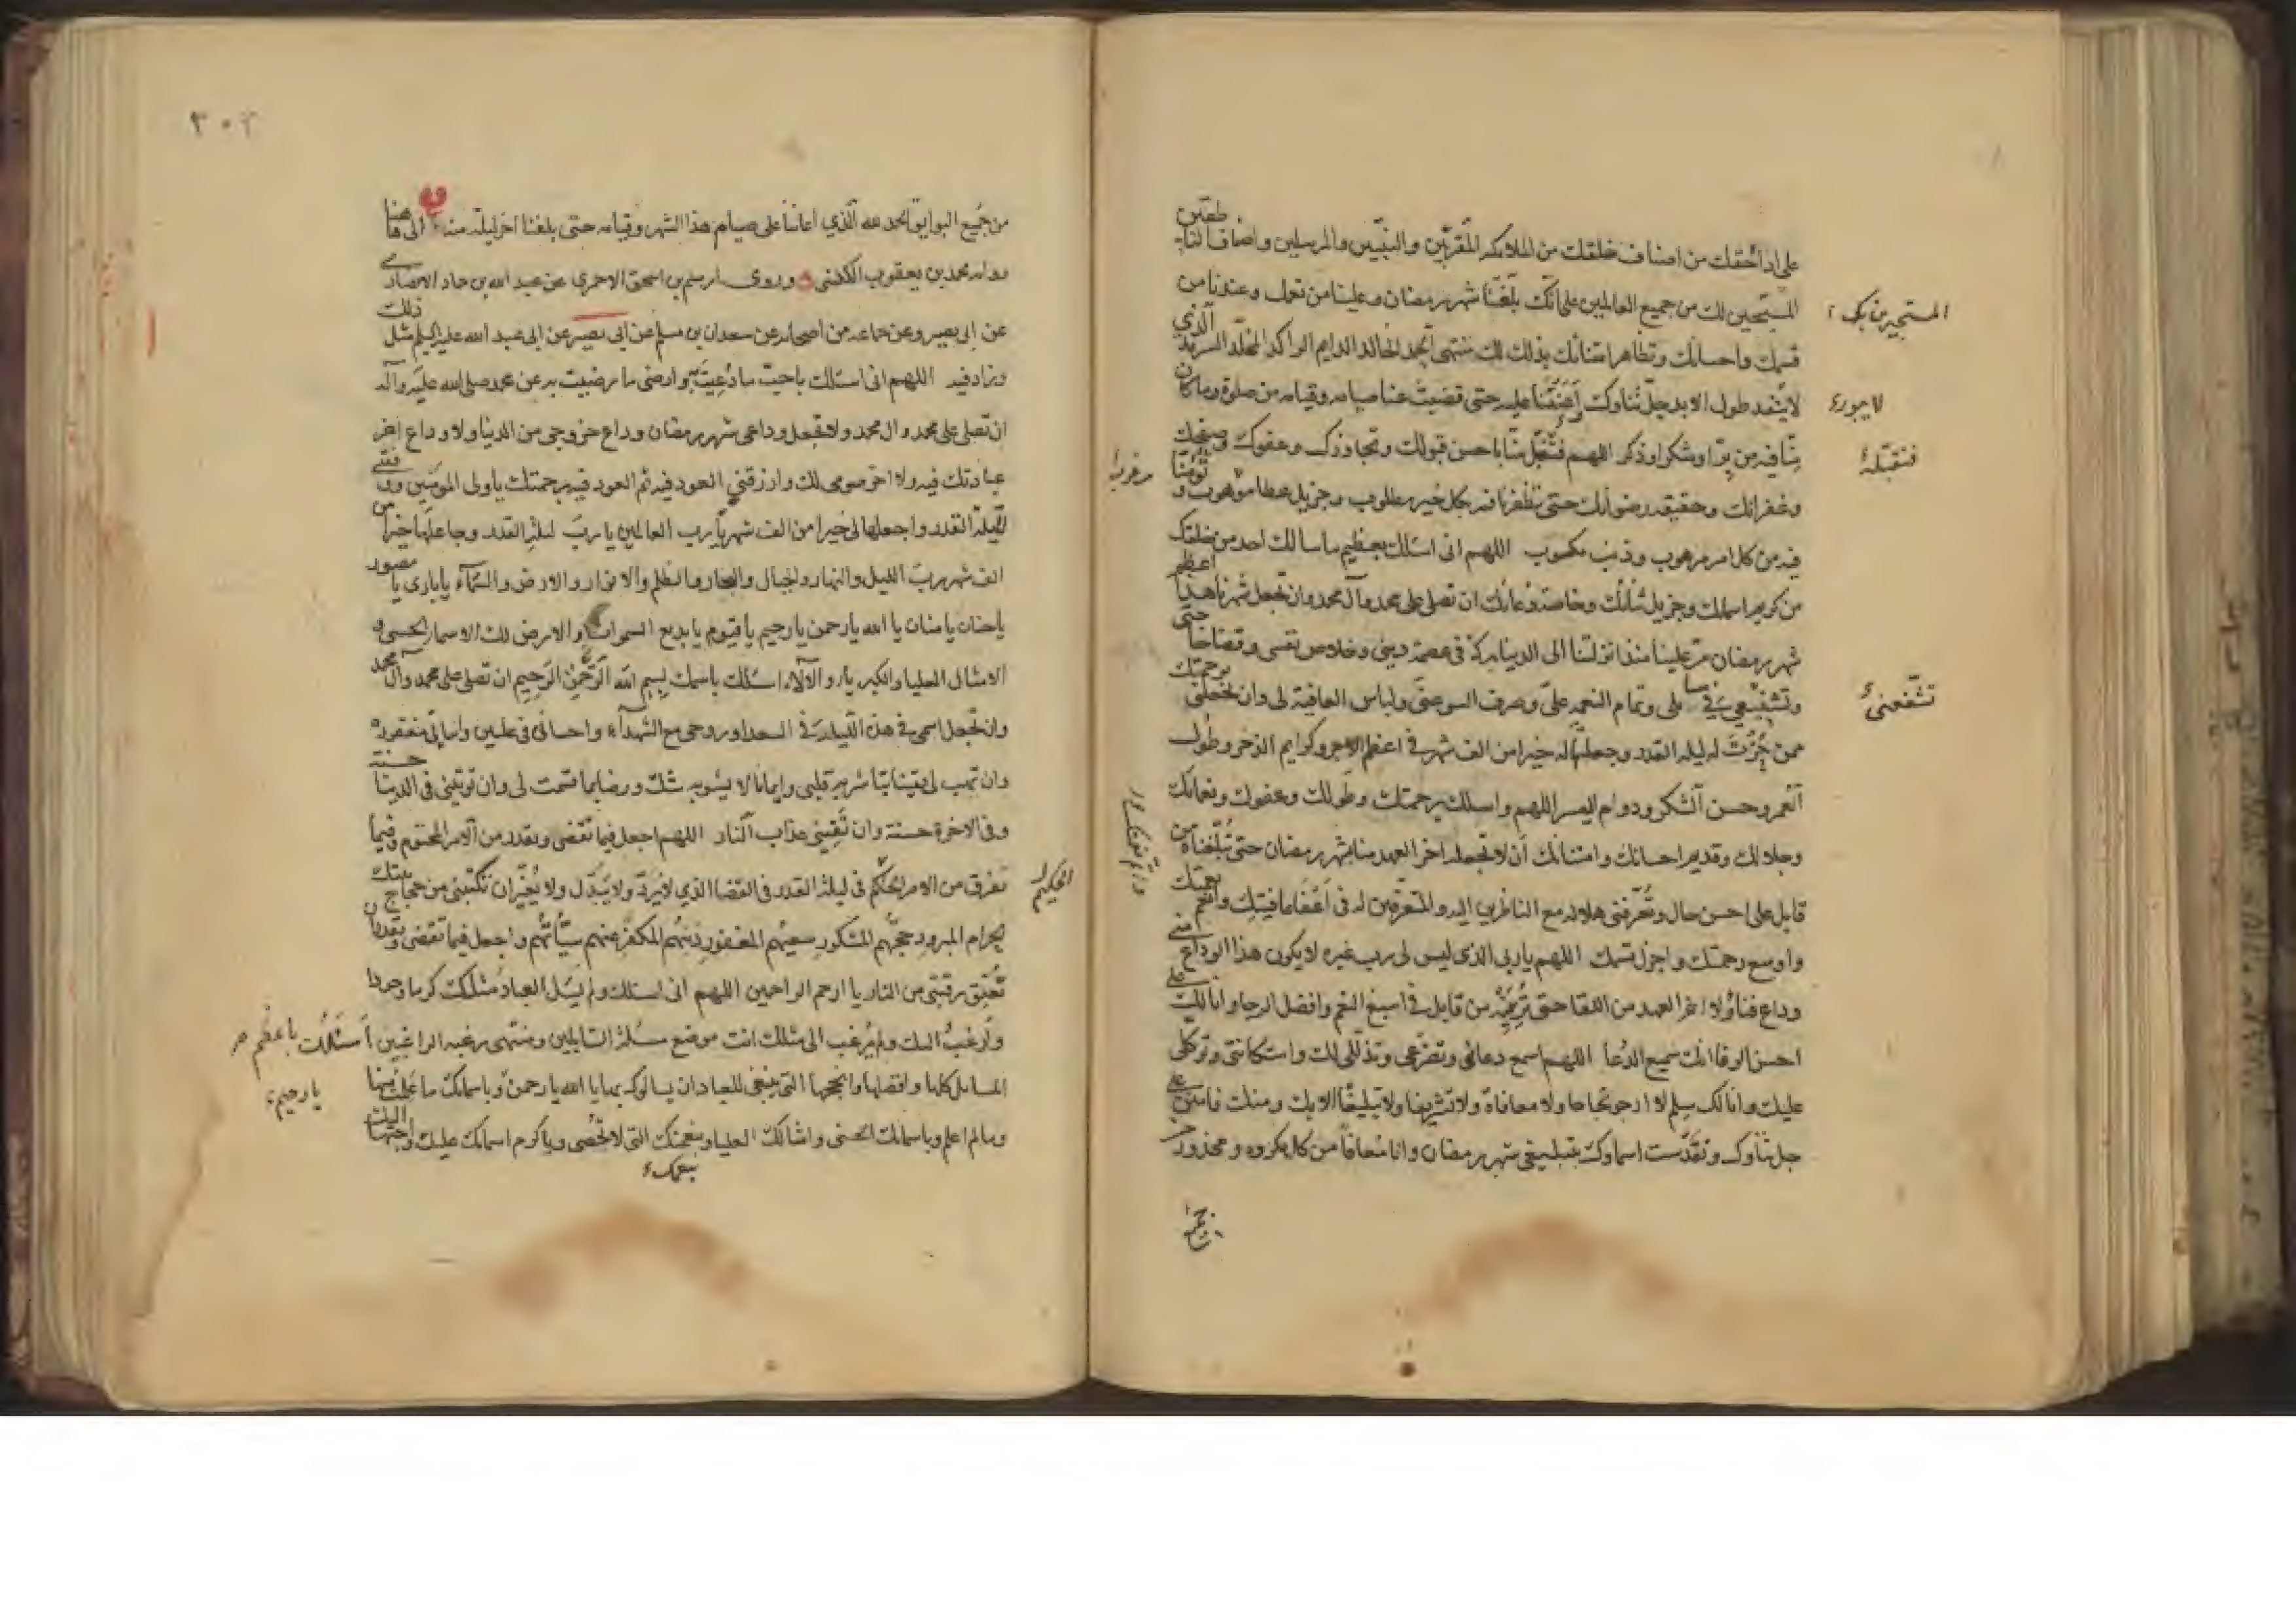 على اداء حقك من اصناف خلقك من الملائكة المقربين والنبيين والمرسلين واصناف الناطقين
المستجيرين بك
المسبحين لك من جميع العالمين على انك بلغتنا شهر رمضان وعلينا من نعمك وعندنا من
قسمك واحسانك وتظاهر امتنانك بذلك لك منتهى الحمد الخالد الدايم الراكد المخلد السرمد الذي
لا ينفد طول الابد جل ثناوك اعنتنا عليه حتى قضيت عنا صيامه وقيامه من صلوة وما كان
لا يبور
منا فيه من بر او شكر او ذكر اللهم فتقبل منا باحسن قبولك وتجاوزك وعفوك وصفحك
فتقبله
وغفرانك وحقيقة رضوانك حتى تظفرنا فيه بكل خير مطلوب وجزيل عطا موهوب وتومننا
مرغوب
فيه من كل امر مرهوب وذنب مكسوب اللهم انى اسئلك بعظيم ما سالك احد من خلقك
من كريم اسمائك وجزيل ثنائك وخاصة دعائك ان تصلى على محمد وآل محمد وان تجعل شهرنا هذا اعظم
شهر رمضان مر علينا منذ انزلتنا الى الدينا بركة فى عصمة دينى وخلاص نفسى وقضا حاجتى
وتشفيعى فى مسا ملى وتمام النعمة على وصرف السو عنى ولباس العافية لى وان تجعلنى برحمتك
تشفعنى
ممن حزت له ليلة القدر وجعلتها له خيرا من الف شهر فى اعظم الاجر وكرايم الذخر وطول
العمر وحسن الشكر ودوام اليسر اللهم واسلك برحمتك وطولك وعفوك ونعمائك
وجلالك وقديم احسانك وامتنانك ان لا تجعله اخر العهد منا بشهر رمضان حتى تبلغناه من
قابل على احسن حال وتعرفنى هلاله مع الناظرين اليه والمتعرفين له فى اعفا عافيتك وانعم نعمتك
واوسع رحمتك واجزل قسمك اللهم يا ربى الذى ليس لى رب غيره لا يكون هذا الوداع منى
وداع فنا ولا اخر العهد من اللقا حتى ترينيه من قابل فى اسبغ النعم وافضل الرجا وانا لك على
احسن الوفا انك سميع الدعا اللهم اسمع دعائى وتضرعى وتذللى لك واستكانتى وتوكلى
عليك وانا لك سلم لا ارجو نجاحا ولا معافاة ولا تشريفا ولا تبليغا الا بك ومنك فامنن على
جل ثناوك وتقدست اسماوك بتبليغى شهر رمضان وانا معافا من كل مكروه ومحذور
٣٠٢
من جميع البوايق الحمد لله الذي اعاننا على صيام هذا الشهر وقيامه حتى بلغنا اخر ليلة منه الى هاهنا
رواه محمد بن يعقوب الكلينى وروى ابرهيم بن اسحق الاحمرى عن عبد الله بن حماد الانصارى
عن ابى بصير وعن جماعه من اصحابه عن سعدان بن مسلم عن ابى بصير عن ابى عبد الله عليه السلم مثل ذلك
وزاد فيه اللهم انى اسئلك باحب ما دعيت به وارضى ما رضيت به عن محمد صلى الله عليه وآله
ان تصلى على محمد وال محمد ولا تجعل وداعى شهر رمضان وداع خروجى من الدنيا ولا وداع اخر
عبادتك فيه ولا اخر صومى لك وارزقني العود فيه ثم العود فيه برحمتك يا ولى المومنين ووفقنى
لليلة القدر واجعلها لى خيرا من الف شهر يا رب العالمين يا رب ليلة القدر وجاعلها خيرا من
الف شهر رب الليل والنهار والجبال والبحار والظلم والانوار والارض والسماء يا بارى يا مصور
يا حنان يا منان يا الله يا رحمن يا رحيم يا قيوم يا بديع السموات والارض لك الاسماء الحسنى و
الامثال العليا والكبرياء والآلاء اسئلك باسمك بسم الله الرحمن الرحيم ان تصلى على محمد وآل محمد
وان تجعل اسمى فى هذه الليلة فى السعدا وروحى مع الشهدآء واحسانى فى عليين واسائتى مغفورة
وان تهب لى يقينا تباشر به قلبى وايمانا لا يشوبه شك ورضا بما قسمت لى وان توتينى فى الدينا حسنة
وفى الاخرة حسنة وان تقينى عذاب النار اللهم اجعل فيما تقضى وتقدر من الامر المحتوم وفيما
تفرق من الامر الحكيم فى ليلة القدر فى القضا الذي لا يرد ولا يبدل ولا يغير ان تكتبنى من حجاج بيتك
الحكيم
الحرام المبرور حجهم المشكور سعيهم المغفور ذنبهم المكفر عنهم سيئاتهم واجعل فيما تقضى وتقدر ان
تعتق رقبتى من النار يا ارحم الراحمين اللهم انى اسئلك ولم يسئل العباد مثلك كرما وجودا
وارغب اليك ولم يرغب الى مثلك انت موضع مسئلة السايلين ومنتهى رغبة الراغبين اسئلك باعظم
المسايل كلها وافضلها وانجحها التى ينبغى للعباد ان يسالوك بها يا الله يا رحمن وباسمائك ما علمت منها
يا رحيم
وما لم اعلم وباسمائك الحسنى وامثالك العليا وبنعمتك التى لا تحصى وباكرم اسمائك عليك واحبها اليك
بنعمك